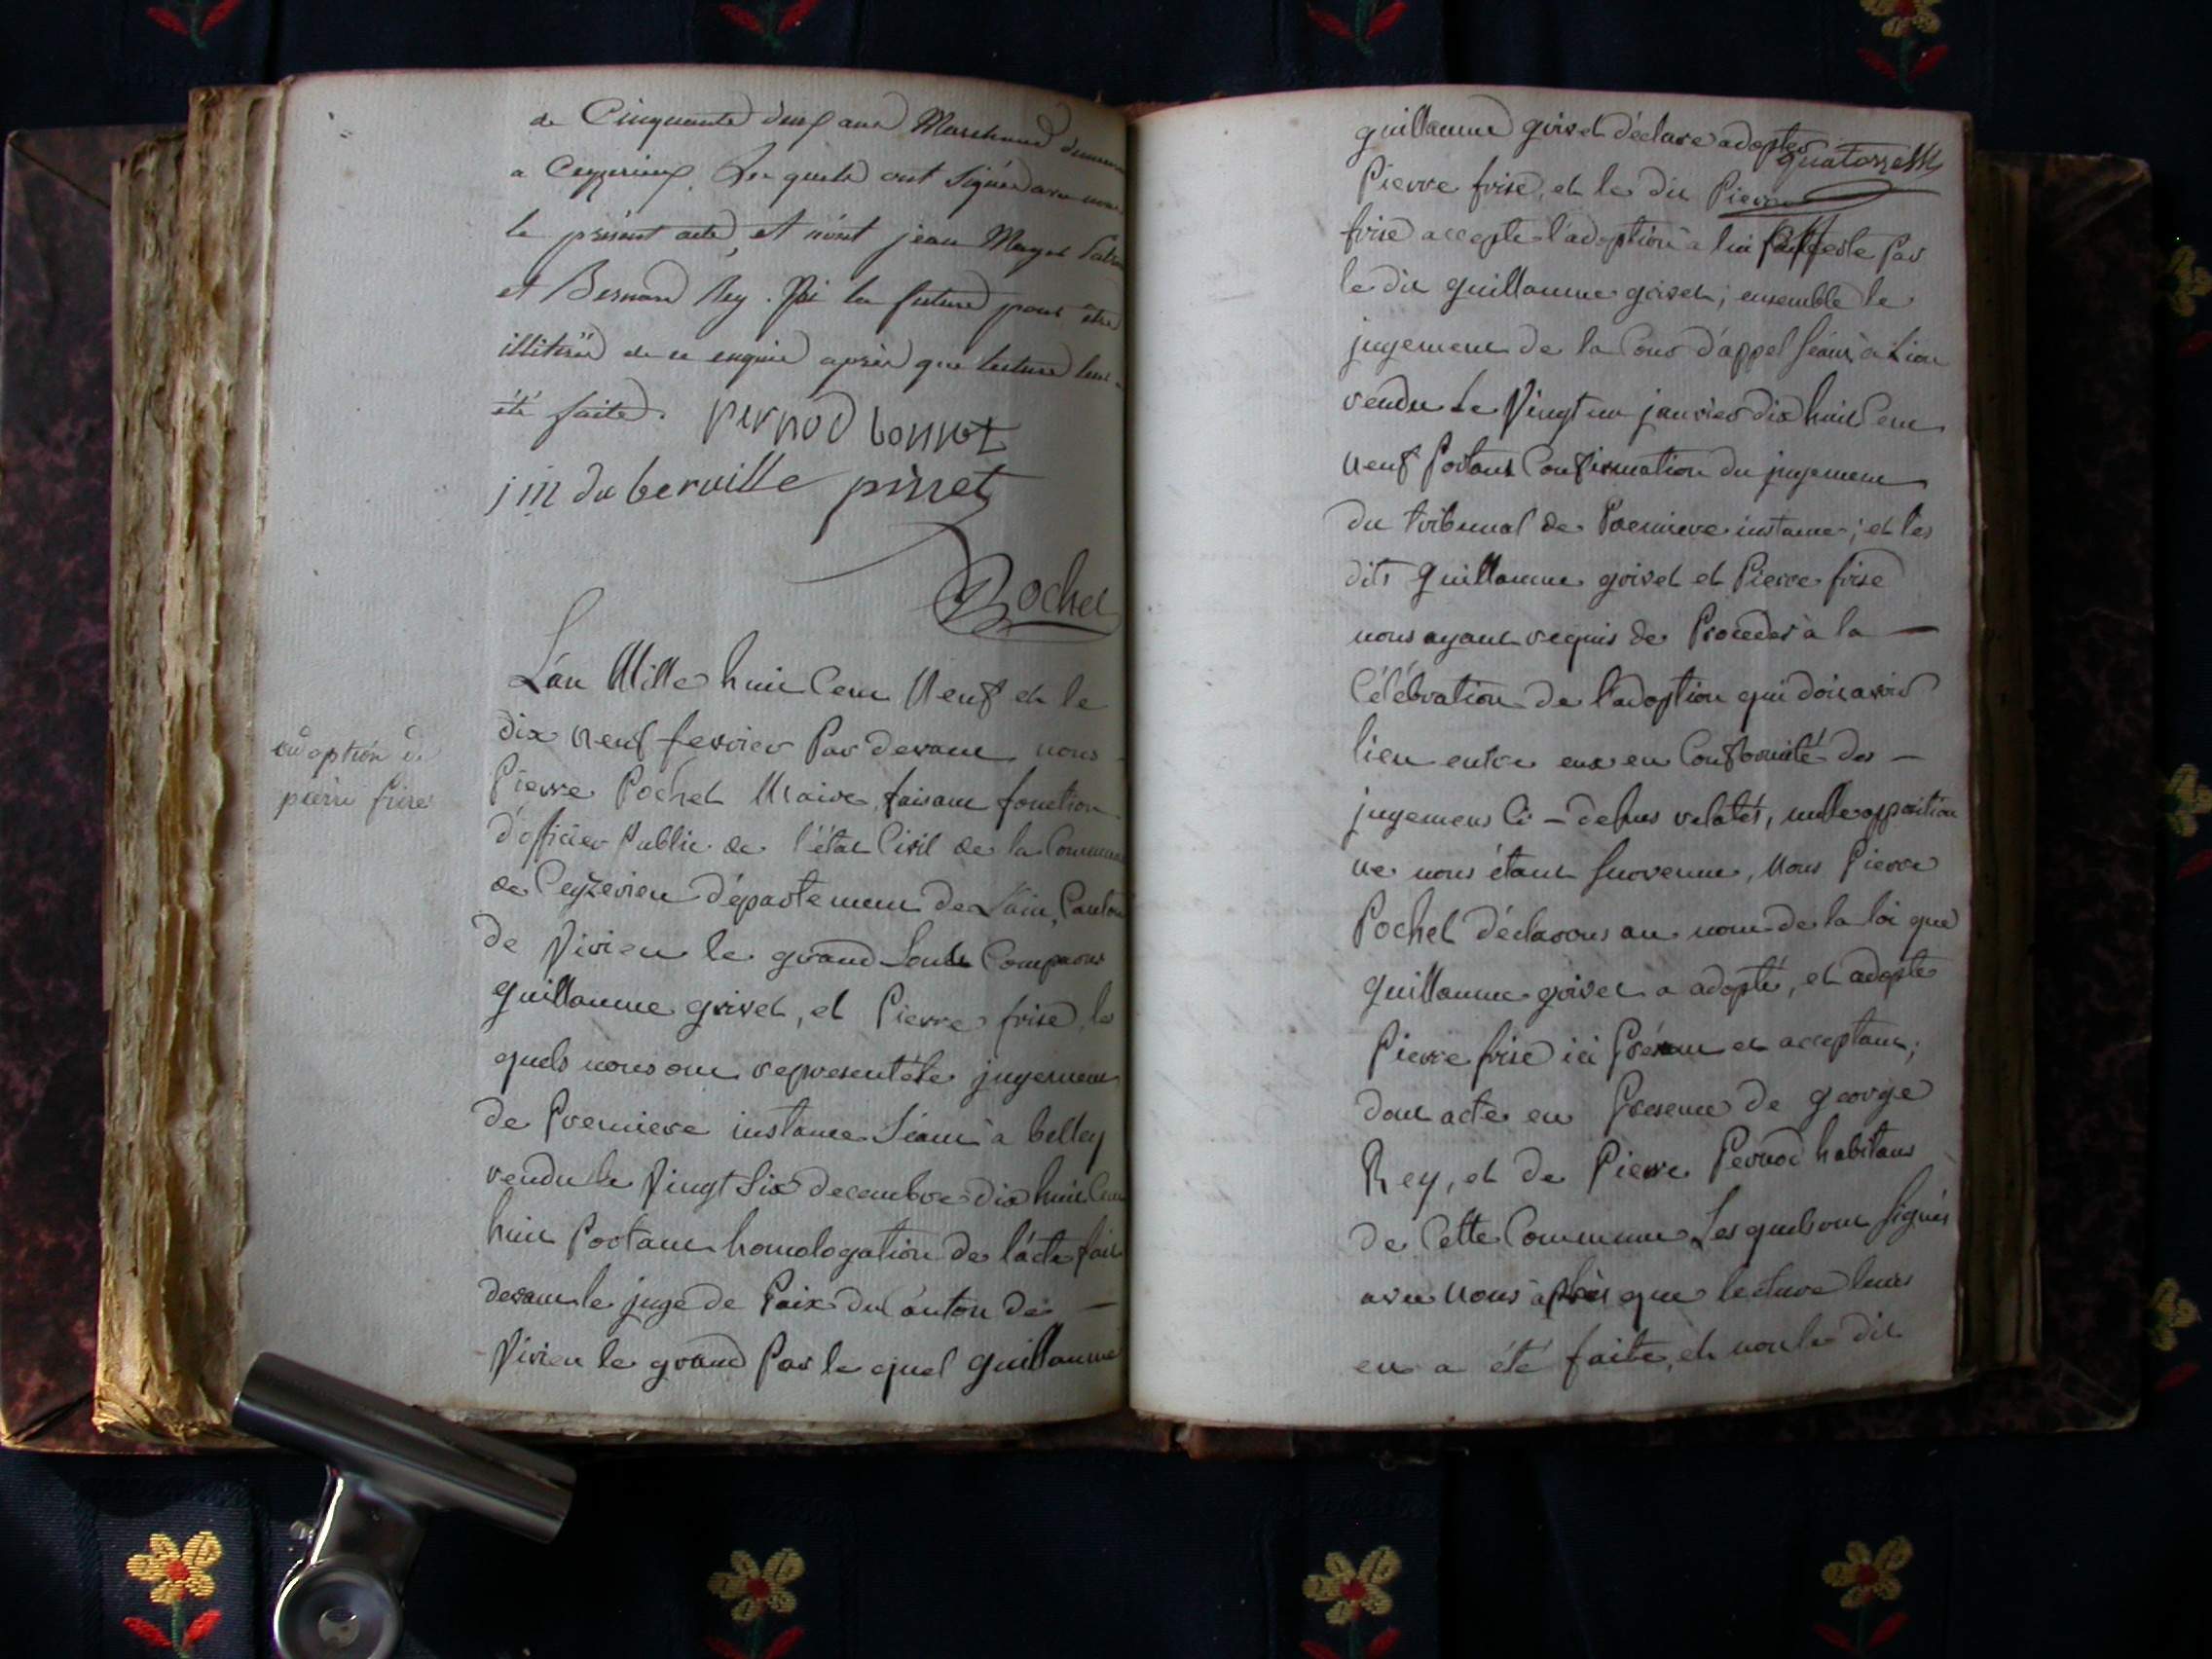 de Cinquante deux ans Marchand
a Ceyzerieux. Les quels ont signé avec nous
le présent acte, et n'ont jean Mayet
et Bernard Rey. Ni la future pour être
illitérée de ce enquis après que lecture leur
été faite. pernod bonnot
jm duberuille pinet
Pochet
L'an Mille huit Cent Neuf et le
dix neuf fevrier Par devant nous
adoption de
pierre frise
Pierre Pochet Maire, faisant fonction
d'officier Public de l'état Civil de la Commune
de Ceyzerieu département de Lain, Canton
de Virieu le grand Sont Comparus
guillaume grivet, et Pierre frise, les
quels nous ont representé le jugement
de Premiere instance Séant à belley
rendu le Vingt Six decembre dix huit Cent
huit Portant homologation de l'acte fait
devant le juge de Paix du Canton de —
Virieu le grand Par le quel guillaume
guillaume grivet déclare adopter
quatorze
Pierre frise, et le dit Pierre
frise accepte l'adoption à lui Par
le dit guillaume grivet; ensemble le
jugement de la Cour d'appel Séant à Lion
rendu le Vingt un janvier dix huit Cent
neuf Portant Confirmation du jugement
du tribunal de Premiere instance; et les
dits guillaume grivet et Pierre frise
nous ayant requis de Proceder à la —
Célébration de l'adoption qui doit avoir
lieu entre eux en Conformité des —
jugemens Ci — dessus relatés, nulle opposition
ne nous étant survenue, Nous Pierre
Pochet déclarons au nom de la loi que
guillaume grivet a adopté, et adopte
Pierre frise ici Présent et acceptant;
dont acte en Presence de george
Rey, et de Pierre Pernod habitans
de Cette Commune Les quels ont signés
avec Nous après que lecture leurs
en a été faite, et non le dit